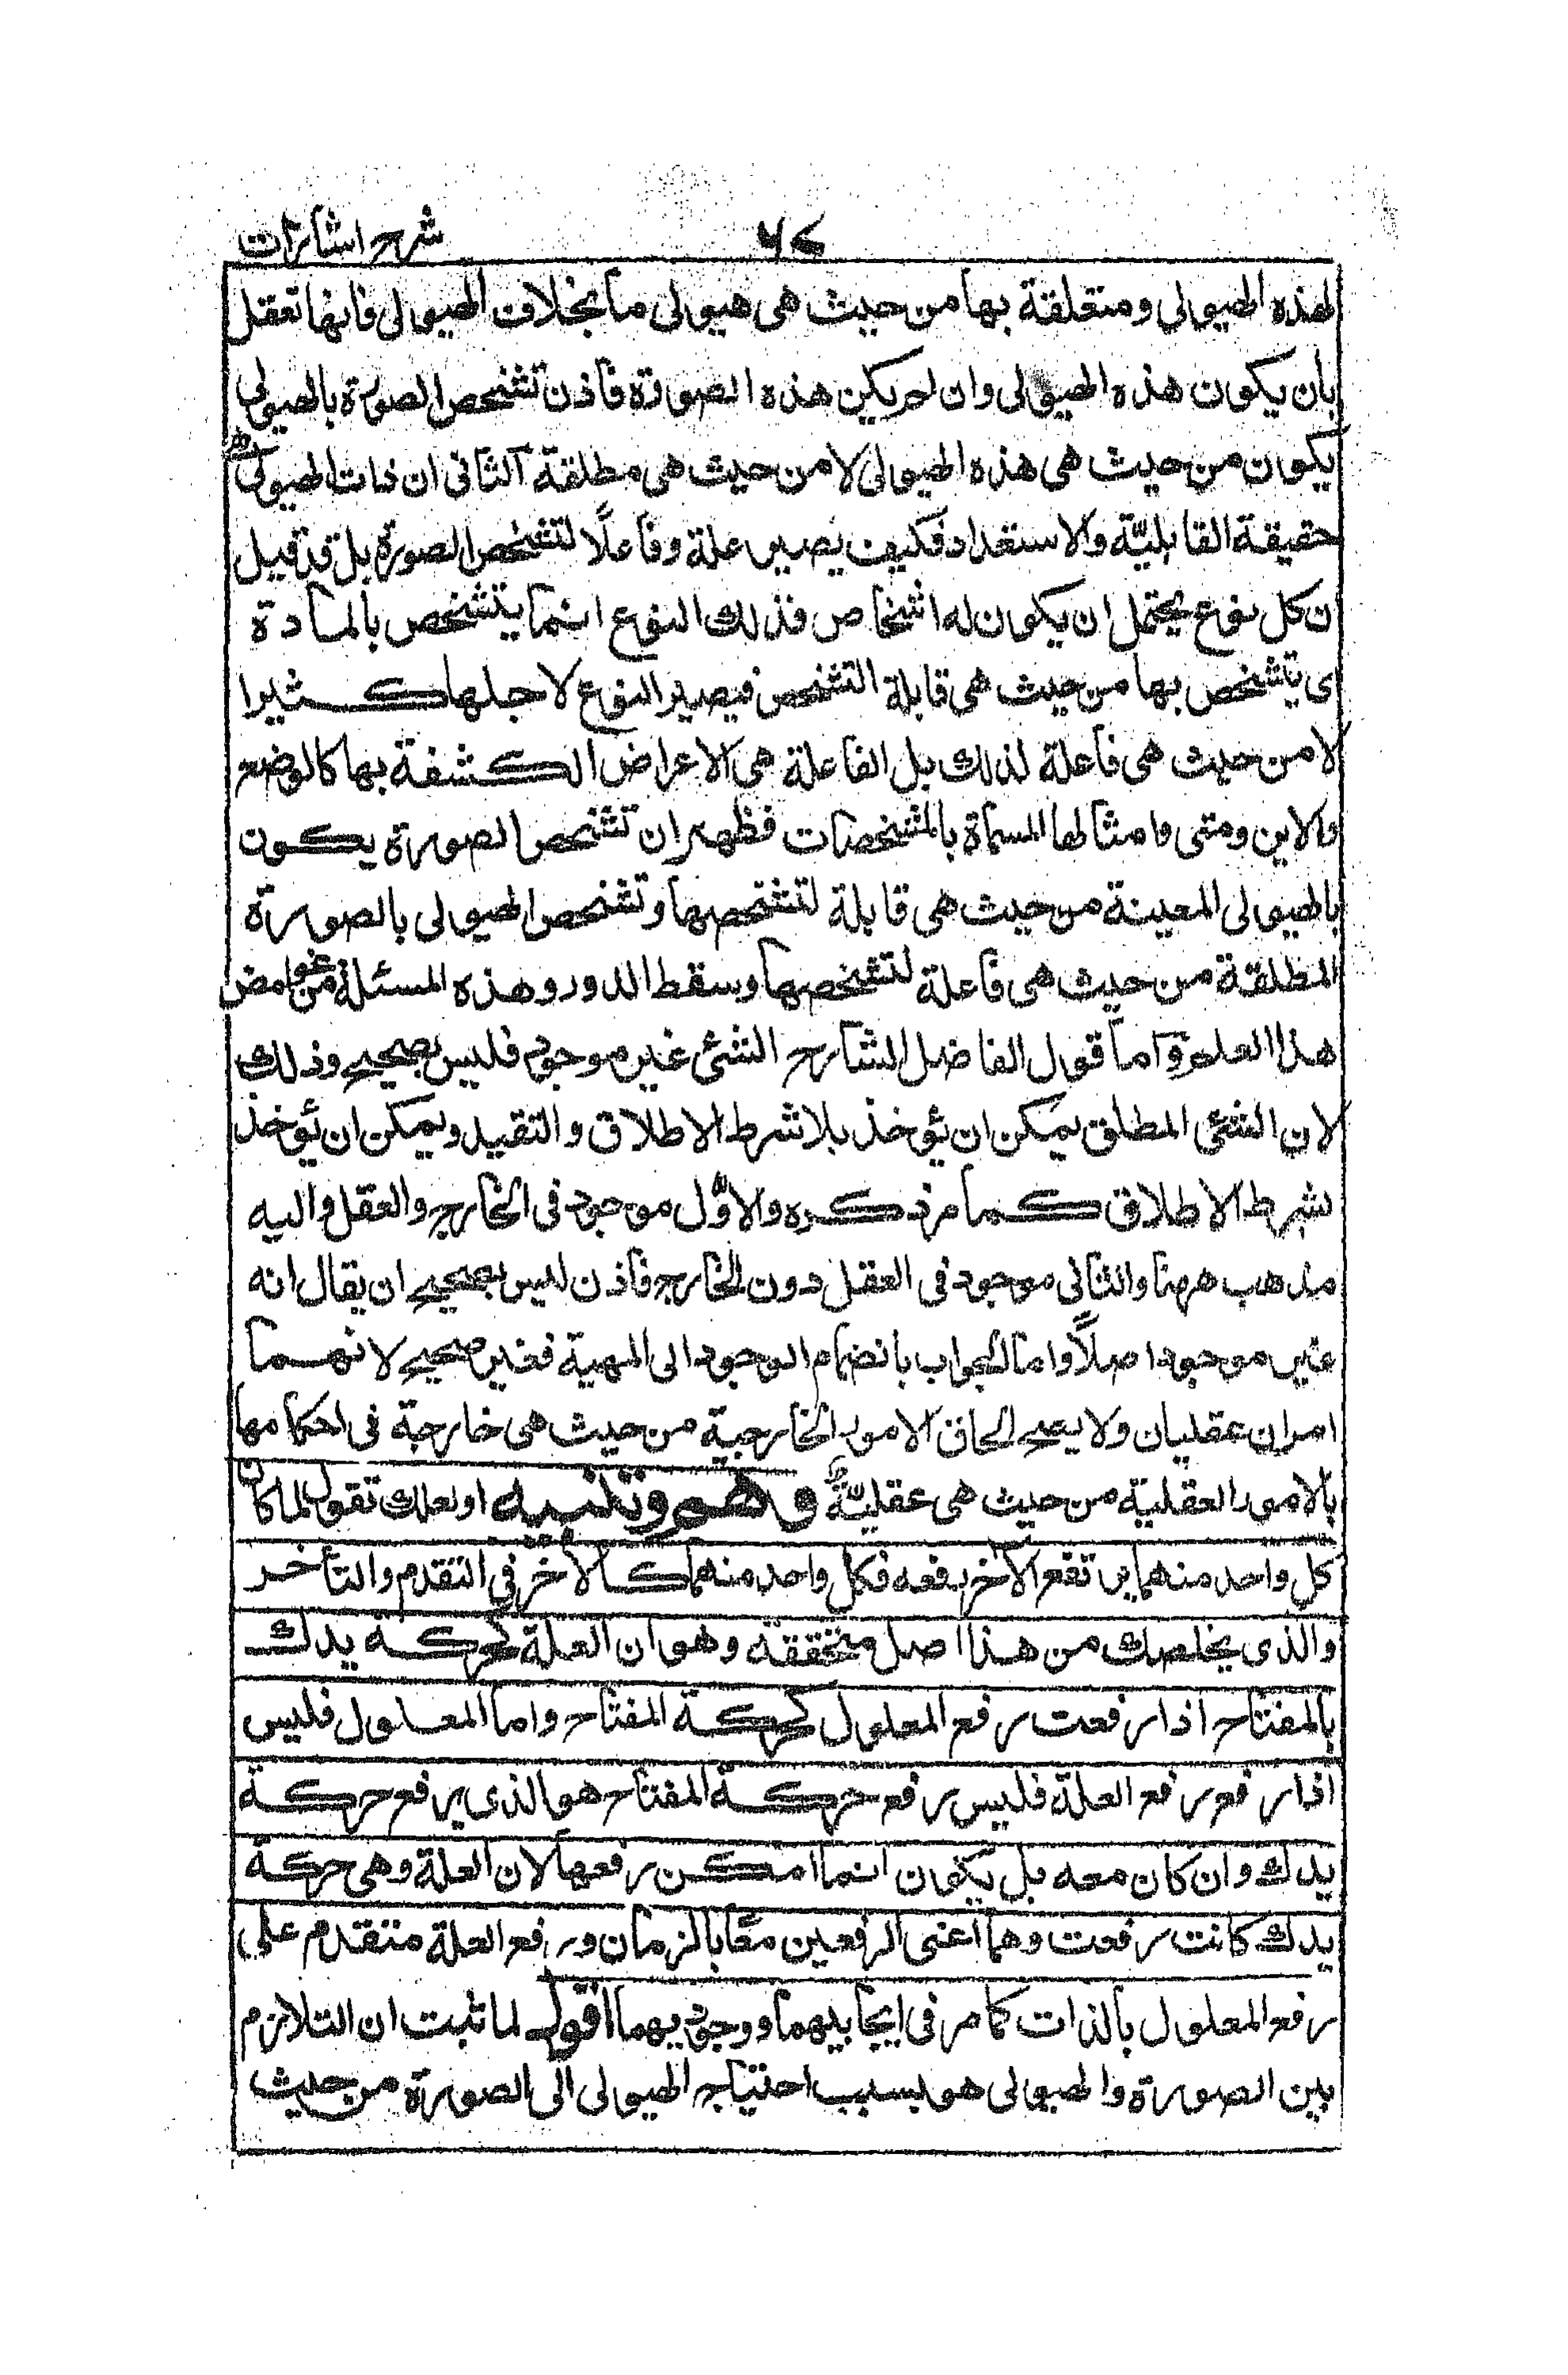 شرح اشارات
لهذه الهيولى ومتعلقة بها من حيث هى هيولى ما بخلاف الهيولى فانها تعقل
بان يكون هذه الهيولى وان لم يكن هذه الصورة فاذن تشخص الصورة بالهيولى
يكون من حيث هى هذه الهيولى لا من حيث هى مطلقة الثانى ان ذات الهيولى هى
حقيقة القابليّة والاستعداد فكيف يصير علة وفاعلًا لتشخص الصورة بل قد قيل
ان كل نوع يحتمل ان يكون له اشخاص فذلك النوع انما يتشخص بالمادة
اى يتشخص بها من حيث هى قابلة التشخص فيصير النوع لاجلها كثيرا
لا من حيث هى فاعلة لذلك بل الفاعلة هى الاعراض المكشفة بها كالوضع
والاين ومتى وامثالها المسماة بالمشخصات فظهر ان تشخص الصورة يكون
بالهيولى المعينة من حيث هى قابلة لتشخصها وتشخص الهيولى بالصورة
المطلقة من حيث هى فاعلة لتشخصها وسقط الدور وهذه المسئلة من غوامض
هذا العلم واما قول الفاضل الشارح الشئ غير موجود فليس بصحيح وذلك
لان الشئ المطلق يمكن ان يؤخذ بلا شرط الاطلاق والتقييد ويمكن ان يؤخذ
بشرط الاطلاق كما مر ذكره والاوّل موجود فى الخارج والعقل واليه
مذهب ههنا والثانى موجود فى العقل دون الخارج فاذن ليس بصحيح ان يقال انه
غير موجود اصلًا واما الجواب بانضمام الوجود الى المهية فغير صحيح لانهما
امران عقليان ولا يصح الحاق الامور الخارجية من حيث هى خارجة فى احكامها
بالامور العقلية من حيث هى عقليّة وهم وتنبيه او لعلك تقول لما كان
كل واحد منهما يرتفع الاخر برفعه فكل واحد منهما كالاخر فى التقدم والتأخر
والذى يخلصك من هذا اصل متحققة وهو ان العلة كحركة يدك
بالمفتاح اذا رفعت رفع المعلول كحركة المفتاح واما المعلول فليس
اذا رفع رفع العلة فليس رفع حركة المفتاح هو الذى يرفع حركة
يدك وان كان معه بل يكون انما امكن رفعها لان العلة وهى حركة
يدك كانت رفعت وهما اعنى الرفعين معًا بالزمان ورفع العلة متقدم على
رفع المعلول بالذات كما مر فى ايجابيهما ووجوديهما اقول لما ثبت ان التلازم
بين الصورة والهيولى هو بسبب احتياج الهيولى الى الصورة من حيث